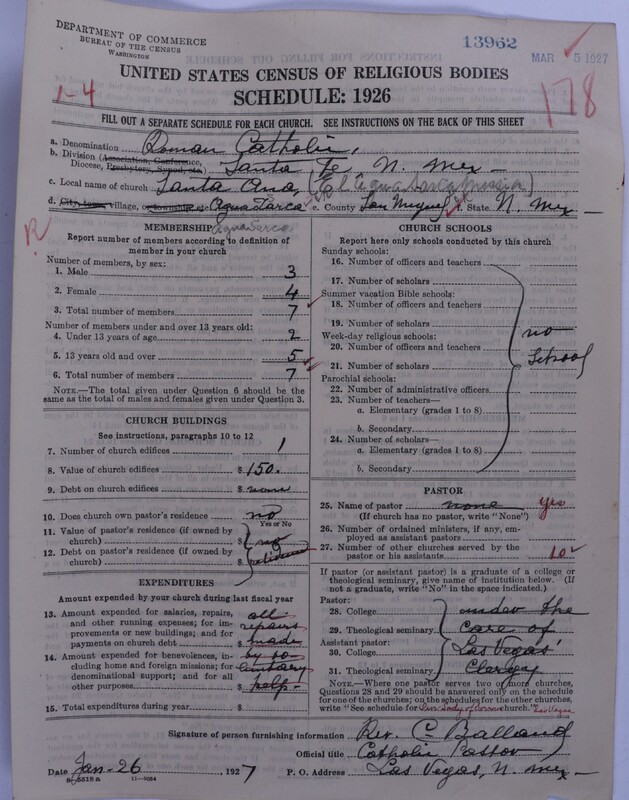 DEPARTMENT OF COMMERCE
BUREAU OF THE CENSUS
WASHINGTON
13962
MAR 5 1927
UNITED STATES CENSUS OF RELIGIOUS BODIES
SCHEDULE: 1926
1-4
178
FILL OUT A SEPARATE SCHEDULE FOR EACH CHURCH. SEE INSTRUCTIONS ON THE BACK OF THIS SHEET
a. Denomination Roman Catholic,
b. Division (Association, Conference, Diocese, Presbytery, Synod, etc.) Santa Fe N. Mex -
c. Local name of church Santa Ana, (El Agua Zarca Mission)
d. City, town, village, or township, etc. Agua Zarca e. County San Miguel f. State N. Mex -
Agua Zarca
R
MEMBERSHIP
Report number of members according to definition of
member in your church
Number of members, by sex:
1. Male 3
2. Female 4
3. Total number of members 7
Number of members under and over 13 years old:
4. Under 13 years of age 2
5. 13 years old and over 5
6. Total number of members 7
NOTE.—The total given under Question 6 should be
same as the total of males and females given under Question 3.
CHURCH BUILDINGS
See instructions, paragraphs 10 to 12
7. Number of church edifices 1
8. Value of church edifices $ 150.
9. Debt on church edifices $ none
10. Does church own pastor's residence no
Yes or No
11. Value of pastor's residence (if owned by
church) $ no
12. Debt on pastor's residence (if owned by
church) $ residence
EXPENDITURES
Amount expended by your church during last fiscal year
13. Amount expended for salaries, repairs,
and other running expenses; for im-
provements or new buildings; and for
payments on church debt $ all repairs made
14. Amount expended for benevolences, in-
cluding home and foreign missions; for
denominational support; and for all
other purposes $ by voluntary help -
15. Total expenditures during year $
CHURCH SCHOOLS
Report here only schools conducted by this church
Sunday schools:
16. Number of officers and teachers
17. Number of scholars
Summer vacation Bible schools:
18. Number of officers and teachers
19. Number of scholars
Week-day religious schools:
20. Number of officers and teachers
21. Number of scholars
no
School
Parochial schools:
22. Number of administrative officers
23. Number of teachers—
a. Elementary (grades 1 to 8)
b. Secondary
24. Number of scholars—
a. Elementary (grades 1 to 8)
b. Secondary
PASTOR
25. Name of pastor none yes
(If church has no pastor, write "None")
26. Number of ordained ministers, if any, em-
ployed as assistant pastors
27. Number of other churches served by the
pastor or his assistants 10
If pastor (or assistant pastor) is a graduate of a college or
theological seminary, give name of institution below. (If
not a graduate, write "No" in the space indicated.)
Pastor:
28. College under the
29. Theological seminary care of
Assistant pastor:
30. College Las Vegas
31. Theological seminary Clergy
NOTE.—Where one pastor serves two or more churches,
Questions 28 and 29 should be answered only on the schedule
for one of the churches; on the schedules for the other churches,
write "See schedule for Our Lady of Sorrows church." Las Vegas
Signature of person furnishing information Rev. C. Balland
Official title Catholic Pastor
Date Jan-26, 1927 P. O. Address Las Vegas, N. Mex -
11—9084